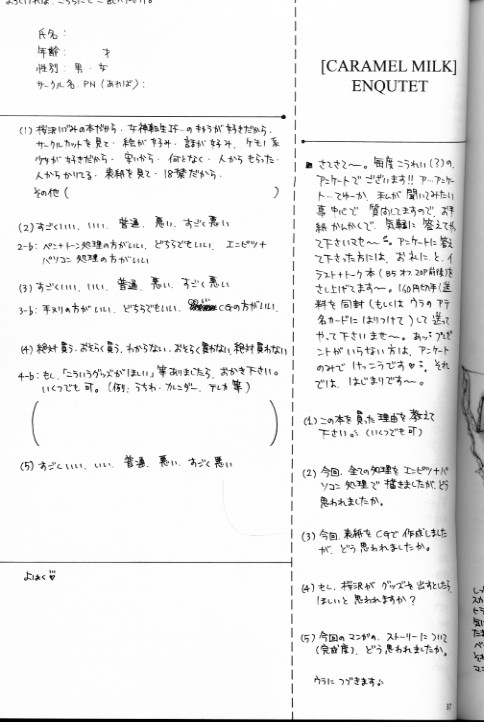 氏名：
年齢：　　才
性別：男・女
サークル名．PN（あれば）：
(1) 桜沢いづみの本だから・女神転生if…のキョウが好きだから・
サークルカットを見て・絵が好み・話が好み・ケモノ系
少年が好きだから・安いから・何となく・人からもらった・
人からかりてる・表紙を見て・18禁だから・
その他（　　　）
(2) すごくいい、いい、普通、悪い、すごく悪い
2-b：ペン+トーン処理の方がいい、どちらでもいい、エンピツ+
パソコン処理の方がいい
(3) すごくいい、いい、普通、悪い、すごく悪い
3-b：手ヌリの方がいい、どちらでもいい、CGの方がいい、
(4) 絶対買う、おそらく買う、わからない、おそらく買わない、絶対買わない
4-b：もし、「こういうグッズがほしい」等ありましたら、おかき下さい。
いくつでも可。（例：うちわ・カレンダー、テレカ等）
(5) すごくいい、いい、普通、悪い、すごく悪い
よはく♡
[CARAMEL MILK]
ENQUTET
さてさて〜。毎度こうれい(?)の、
アンケートでございます!! ア…アンケー
ト…てゆーか、私が聞いてみたい
事中心で質問してますので、お手
紙かんかくで、気軽に答えてやっ
て下さいませ〜。アンケートに答え
て下さった方には、お礼に、と、イ
ラスト+トーク本（B5オフ．20P前後）を
さし上げてます〜。160円切手（送
料を同封（もしくはウラのアテ
名カードにはりつけて）して送っ
てやって下さいませ〜。あっ、プレゼ
ントがいらない方は、アンケート
のみでけっこうです♡ それ
では、はじまりです〜。
(1) この本を買った理由を教えて
下さい。（いくつでも可）
(2) 今回、全ての処理をエンピツ+パ
ソコン処理で描きましたが、どう
思われましたか。
(3) 今回、表紙をCGで作成しました
が、どう思われましたか。
(4) もし、桜沢がグッズを出すとしたら、
ほしいと思われますか？
(5) 今回のマンガの、ストーリーについて
（完成度）、どう思われましたか。
ウラにつづきます♪
37